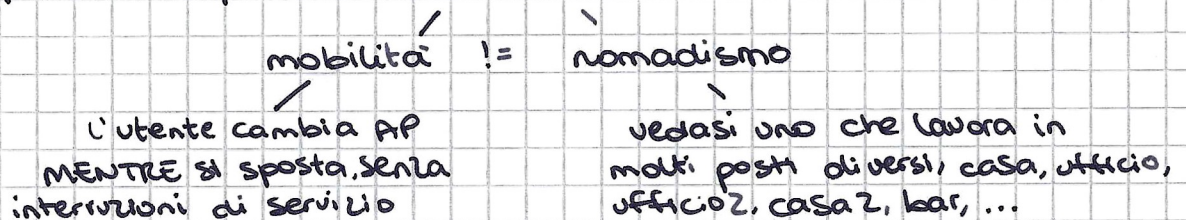 mobilità != nomadismo
l'utente cambia AP
MENTRE si sposta, senza
interruzioni di servizio
vedasi uno che lavora in
molti posti diversi, casa, ufficio,
ufficio2, casa2, bar, ...